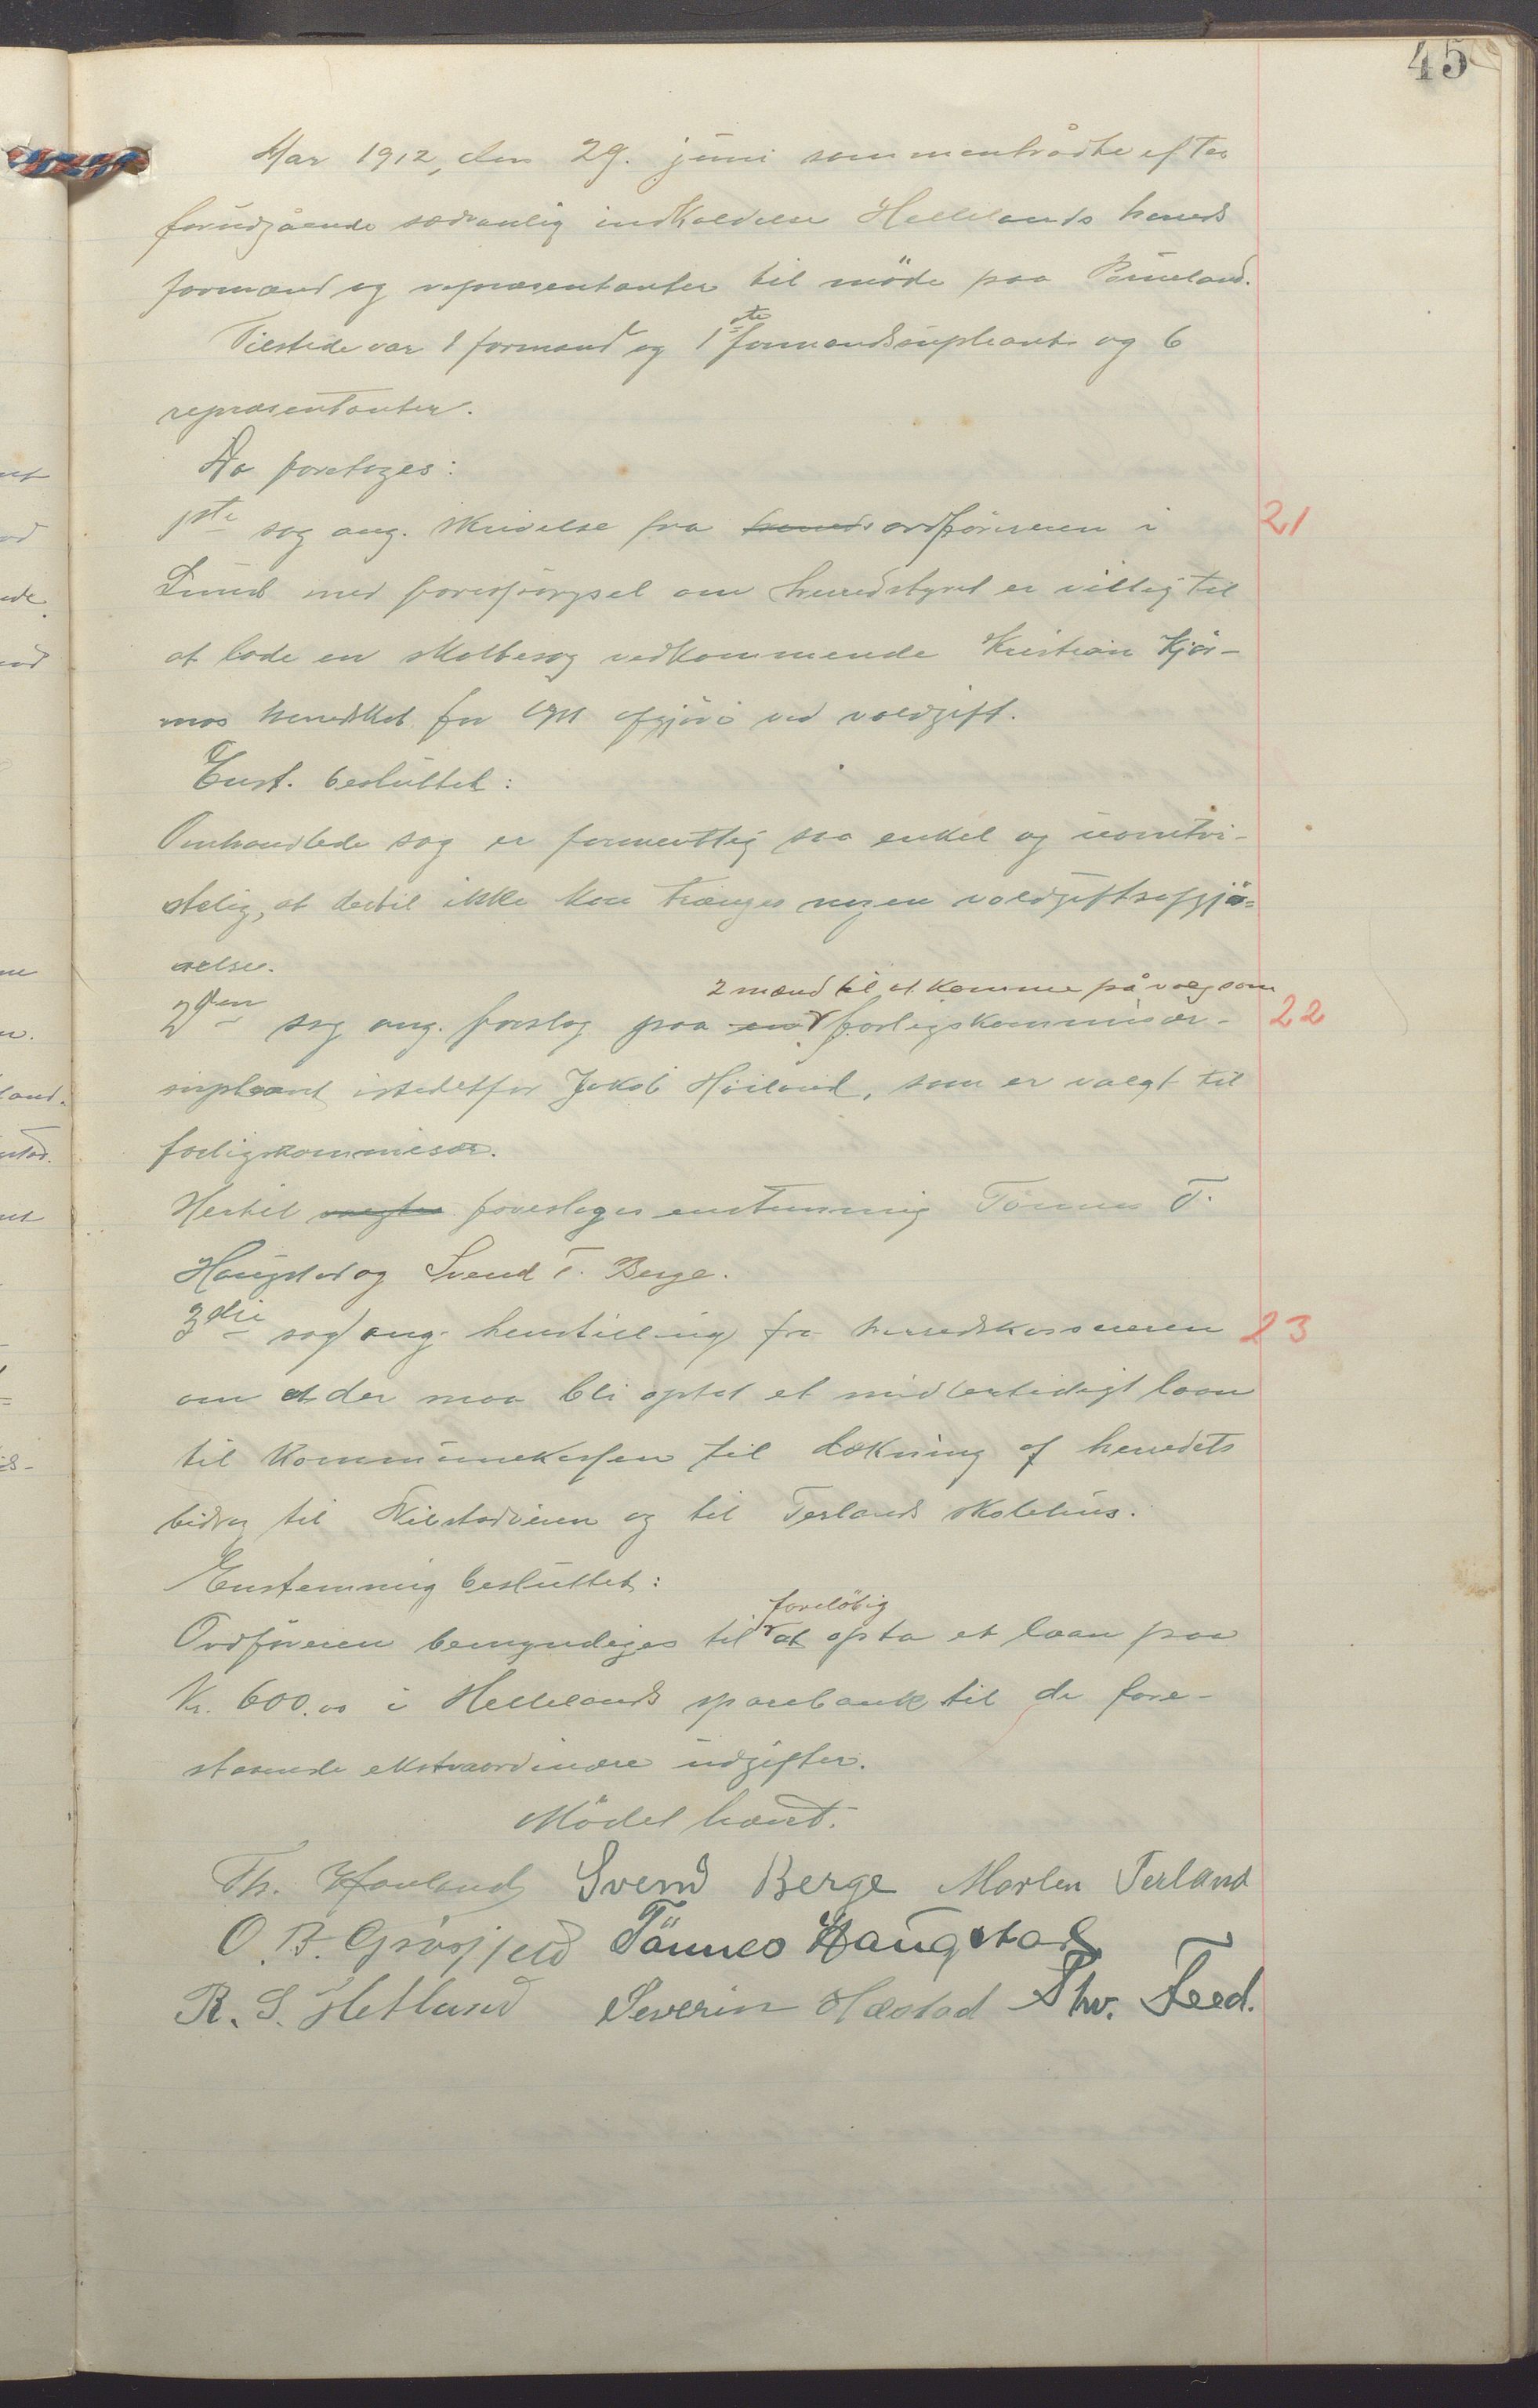 45
Aar 1912, den 29. juni sammentrådte efter
forudgående sedvanlig indkaldelse Hellelands herreds
formænd og repræsentanter til möde paa Birkeland.
Tilstede var 1 formand og 1ste formandsupleant og 6
repræsentanter.
Da foretoges:
1ste sag ang. skrivelse fra herreds ordföreren i 21
Lund med forespörgsel om herredstyret er villig til
at lade en skattesag vedkommende Kristian Kjör-
mos herredskat for 1911 afgjöre ved voldgift.
Enst. besluttet:
Omhandlede sag er formentlig saa enkel og uomtvi-
stelig, at dertil ikke kan trænges nogen voldgiftsafgjö-
relse.
2 mænd til at komme på valg som
2den sag ang. forslag paa en forligskommisær- 22
supleant istedetfor Jakob Höiland, som er valgt til
forligskommisær.
Hertil valgtes foresloges enstemmig Tönnes T.
Haugstad og Svend T. Berge.
3die sag ang. henstilling fra herredskassereren 23
om at der maa bli optat et midlertidigt laan
til kommunekassen til dækning af herredets
bidrag til veien og til Terlands skolehus.
Enstemmig besluttet:
foreløbig
Ordföreren bemyndiges til at opta et laan paa
Kr. 600.00 i Hellelands sparebank til de fore-
staaende ekstraordinære udgifter.
Mödet hævet.
Th. Hovland Svend Berge Morten Terland
O. B. Grösfjeld Tönnes Haugstad
R. S. Hetland Severin Hæstad Thv. Feed.